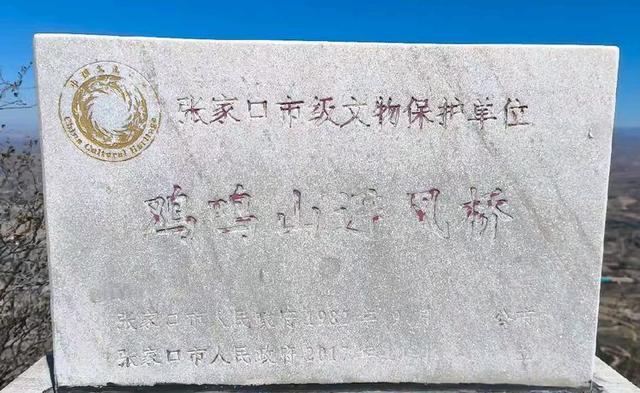 China Cultural Heritage
张家口市级文物保护单位
鸡鸣山 风桥
张家口市人民政府 1982 年 月 公布
张家口市人民政府 2017 年 立